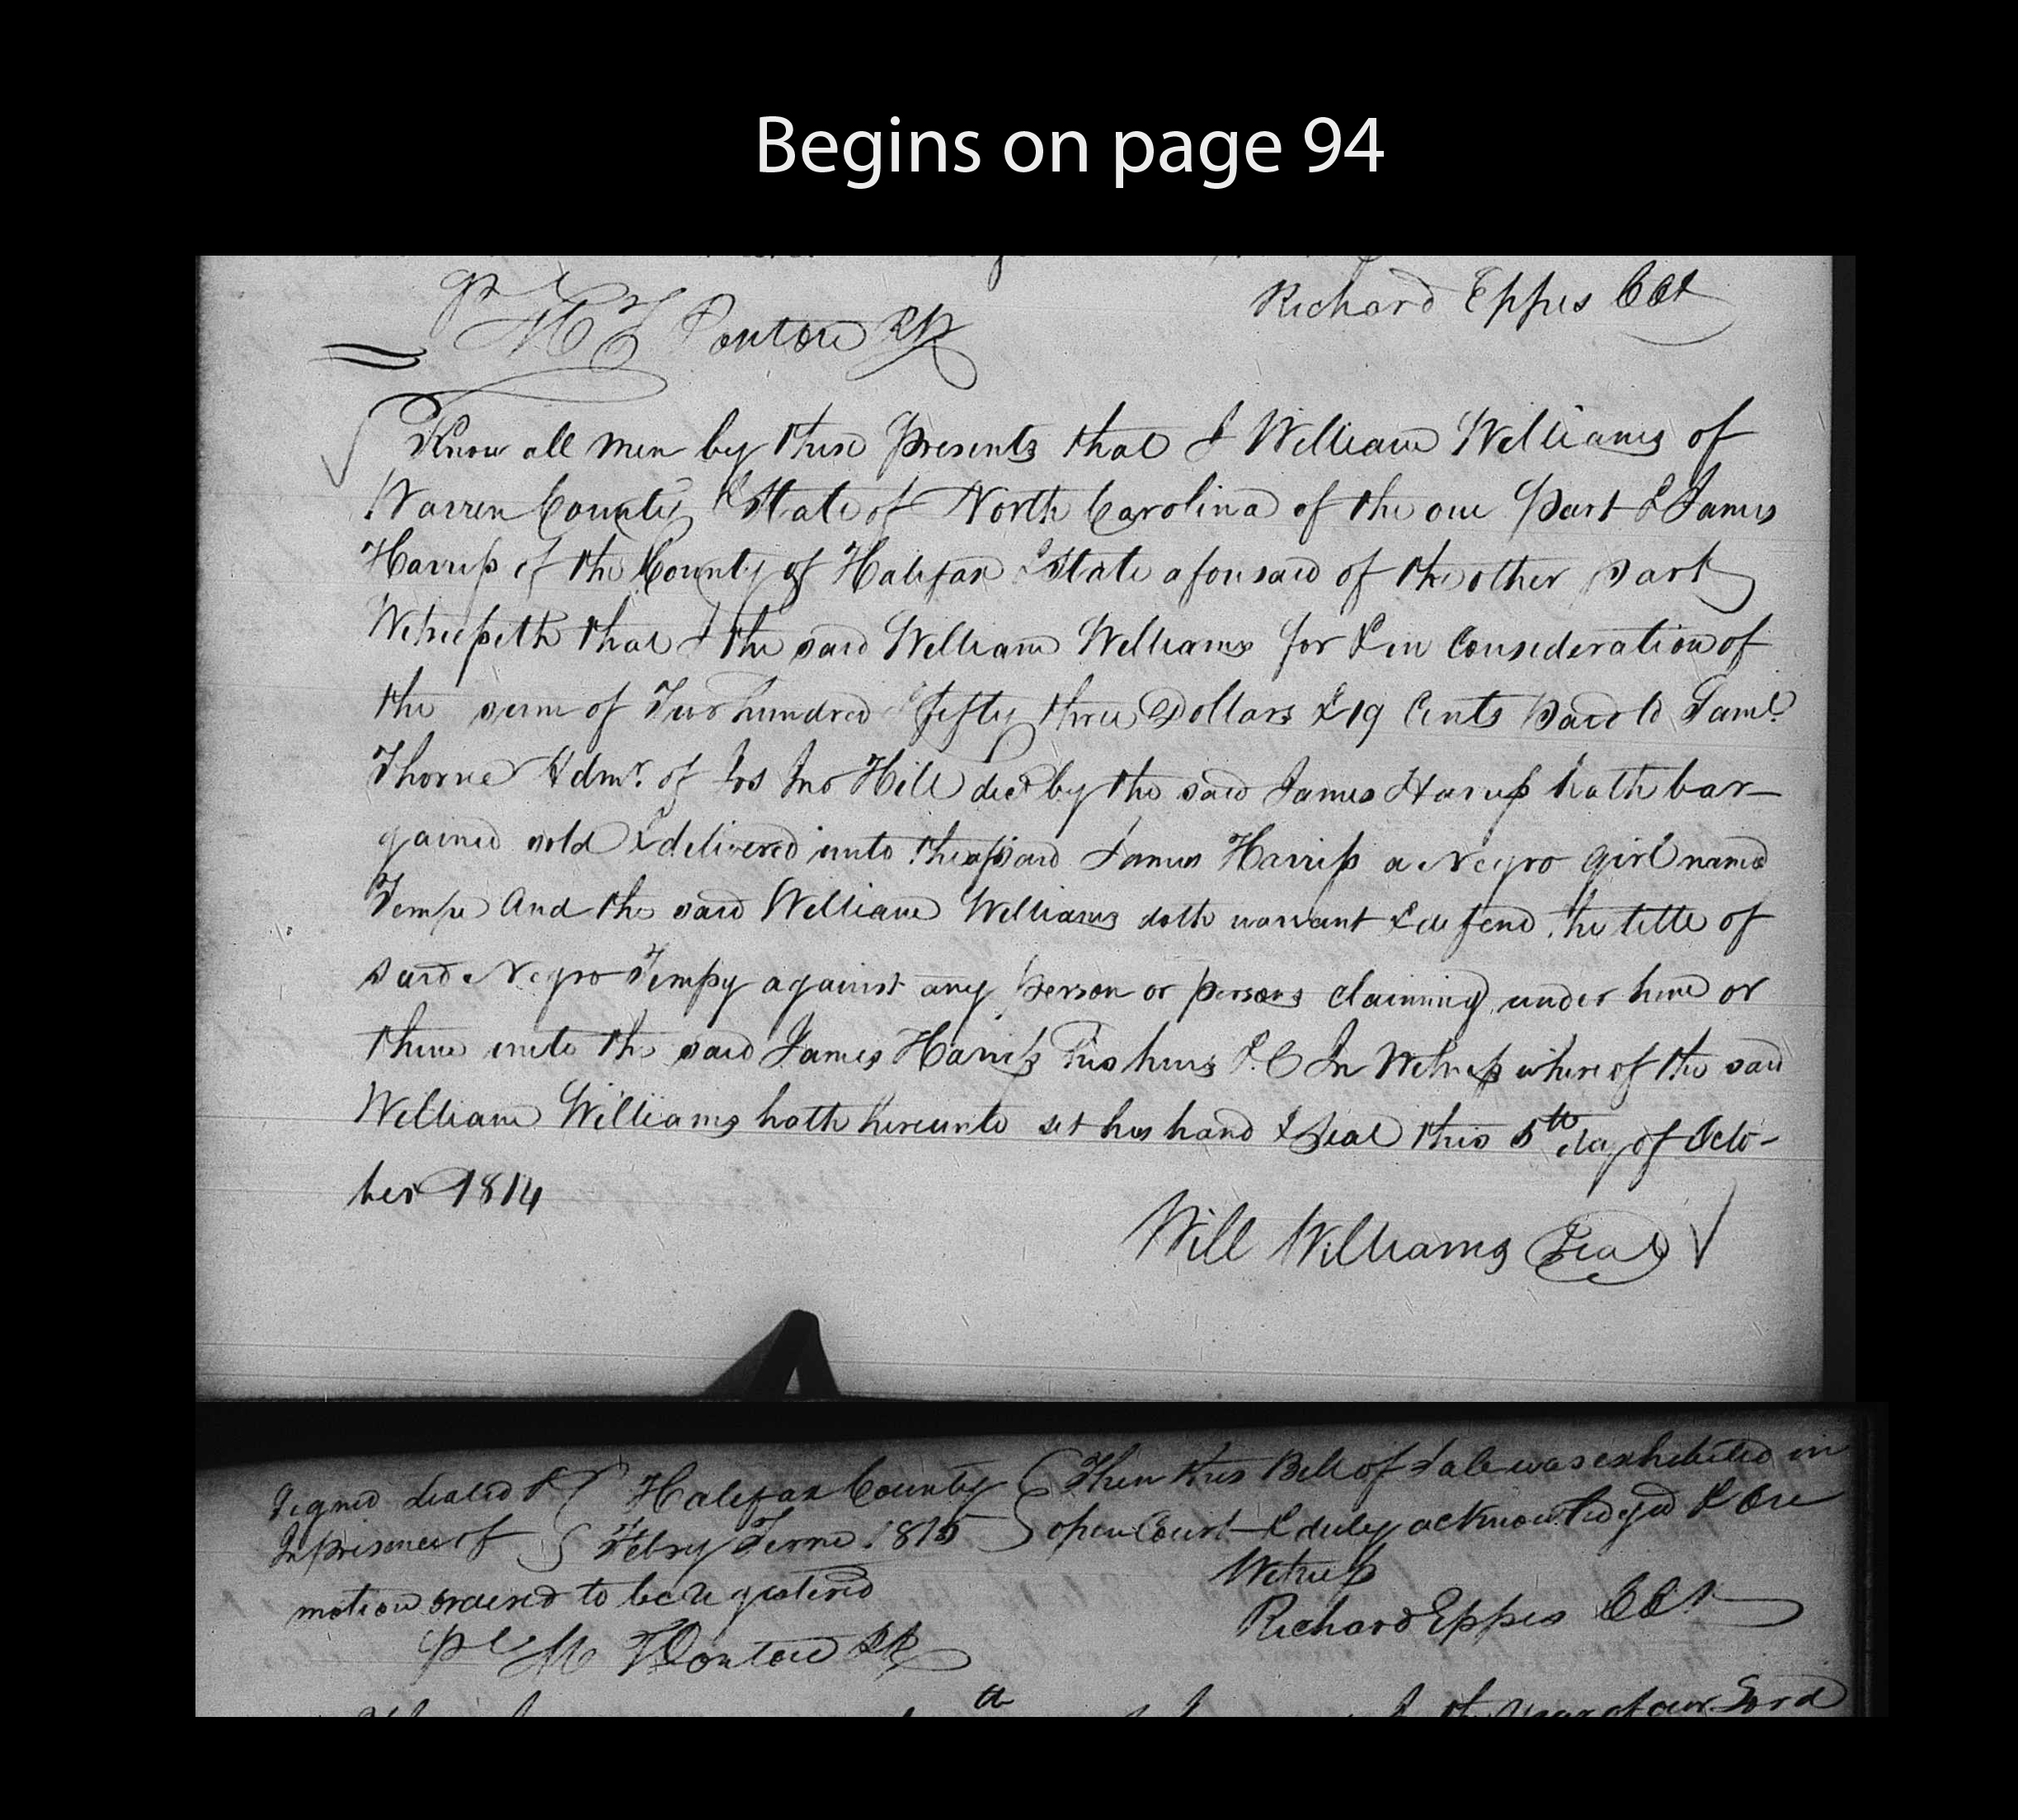 Begins on page 94
Richard Eppes CCt
pr M T Ponton PR
Know all men by these presents that I William Williams of
Warren County & State of North Carolina of the one part & James
Harriss of the County of Halifax & State aforesaid of the other part
Witnesseth that I the said William Williams for & in Consideration of
the sum of Two hundred & fifty three Dollars & 19 Cents paid to Saml.
Thorne Admr. of Jos Jno Hill decd by the said James Harriss hath bar-
gained sold & delivered unto the said James Harriss a Negro girl named
Tempe And the said William Williams doth warrant & defend the title of
said Negro Tempy against any person or persons claiming under him or
them unto the said James Harriss his heirs &C In Witness whereof the said
William Williams hath hereunto set his hand & Seal this 5th day of Octo-
ber 1814
Will Williams Seal
Signed Sealed & Halifax County Then this Bill of Sale was exhibited in
In presence of Febry Term 1815 open Court & duly acknowledged & On
motion ordered to be registered Witness
Richard Eppes CCt
pr M T Ponton PR
th
the Year of our Lord